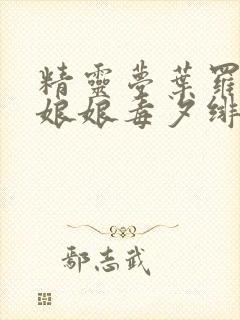 精靈夢葉羅
娘娘毒夕绯
鄢志武